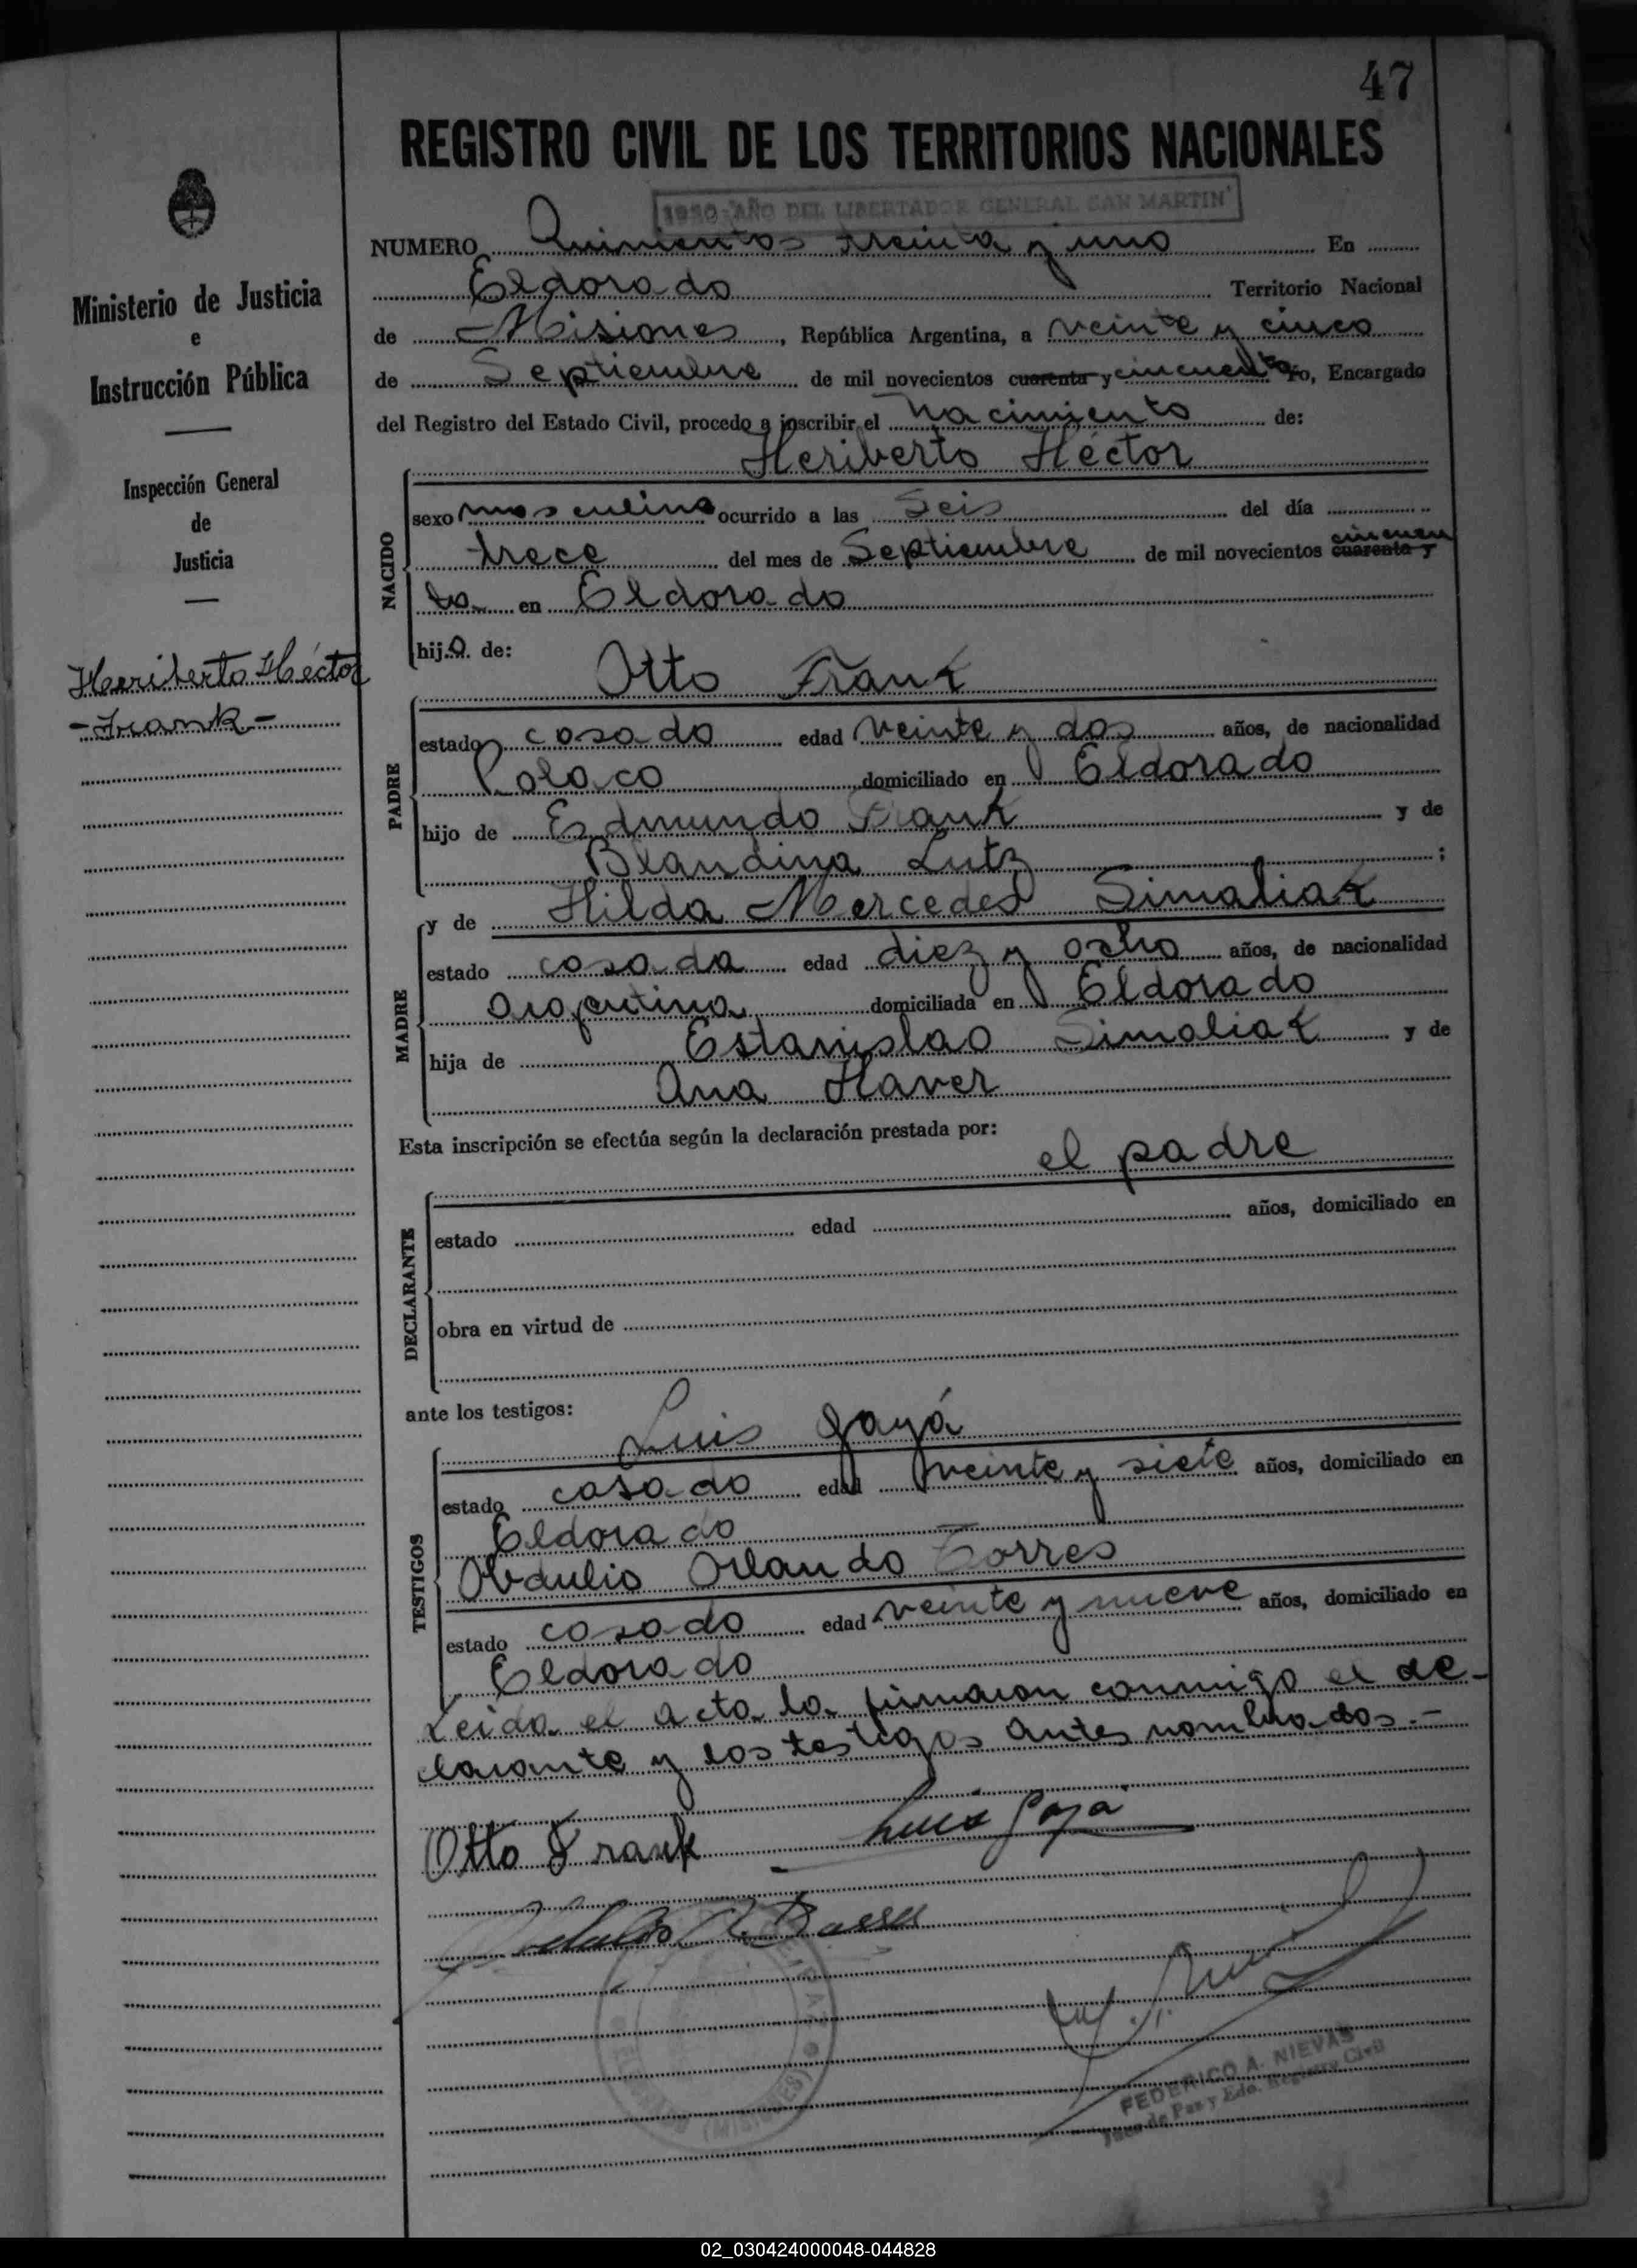 47
REGISTRO CIVIL DE LOS TERRITORIOS NACIONALES
1950-AÑO DEL LIBERTADOR GENERAL SAN MARTIN
Ministerio de Justicia
e
Instrucción Pública
Inspección General
de
Justicia
Heriberto Héctor
- Frank -
NUMERO Quinientos treinta y uno En
Eldorado Territorio Nacional
de Misiones, República Argentina, a veinte y cinco
de Septiembre de mil novecientos cuarenta y cincuenta Yo, Encargado
del Registro del Estado Civil, procedo a inscribir el nacimiento de:
Heriberto Héctor
NACIDO
sexo masculino ocurrido a las Seis del día
trece del mes de Septiembre de mil novecientos cuarenta y cincuen
ta en Eldorado
hijo de:
Otto Frank
PADRE
estado casado edad veinte y dos años, de nacionalidad
Polaco domiciliado en Eldorado
hijo de Edmundo Frank y de
Blandina Lutz ;
y de Hilda Mercedes Simaliak
MADRE
estado casada edad diez y ocho años, de nacionalidad
argentina domiciliada en Eldorado
hija de Estanislao Simaliak y de
Ana Haver
Esta inscripción se efectúa según la declaración prestada por:
el padre
DECLARANTE
estado edad años, domiciliado en
obra en virtud de
ante los testigos:
Luis Gayá
TESTIGOS
estado casado edad veinte y siete años, domiciliado en
Eldorado
Obdulio Orlando Torres
estado casado edad veinte y nueve años, domiciliado en
Eldorado
Leida el acta la firmaron conmigo el de-
clarante y los testigos antes nombrados.-
Otto Frank
Luis Gayá
FEDERICO A. NIEVAS
Juez de Paz y Edo. Registro Civil
(MISIONES)
02_030424000048-044828